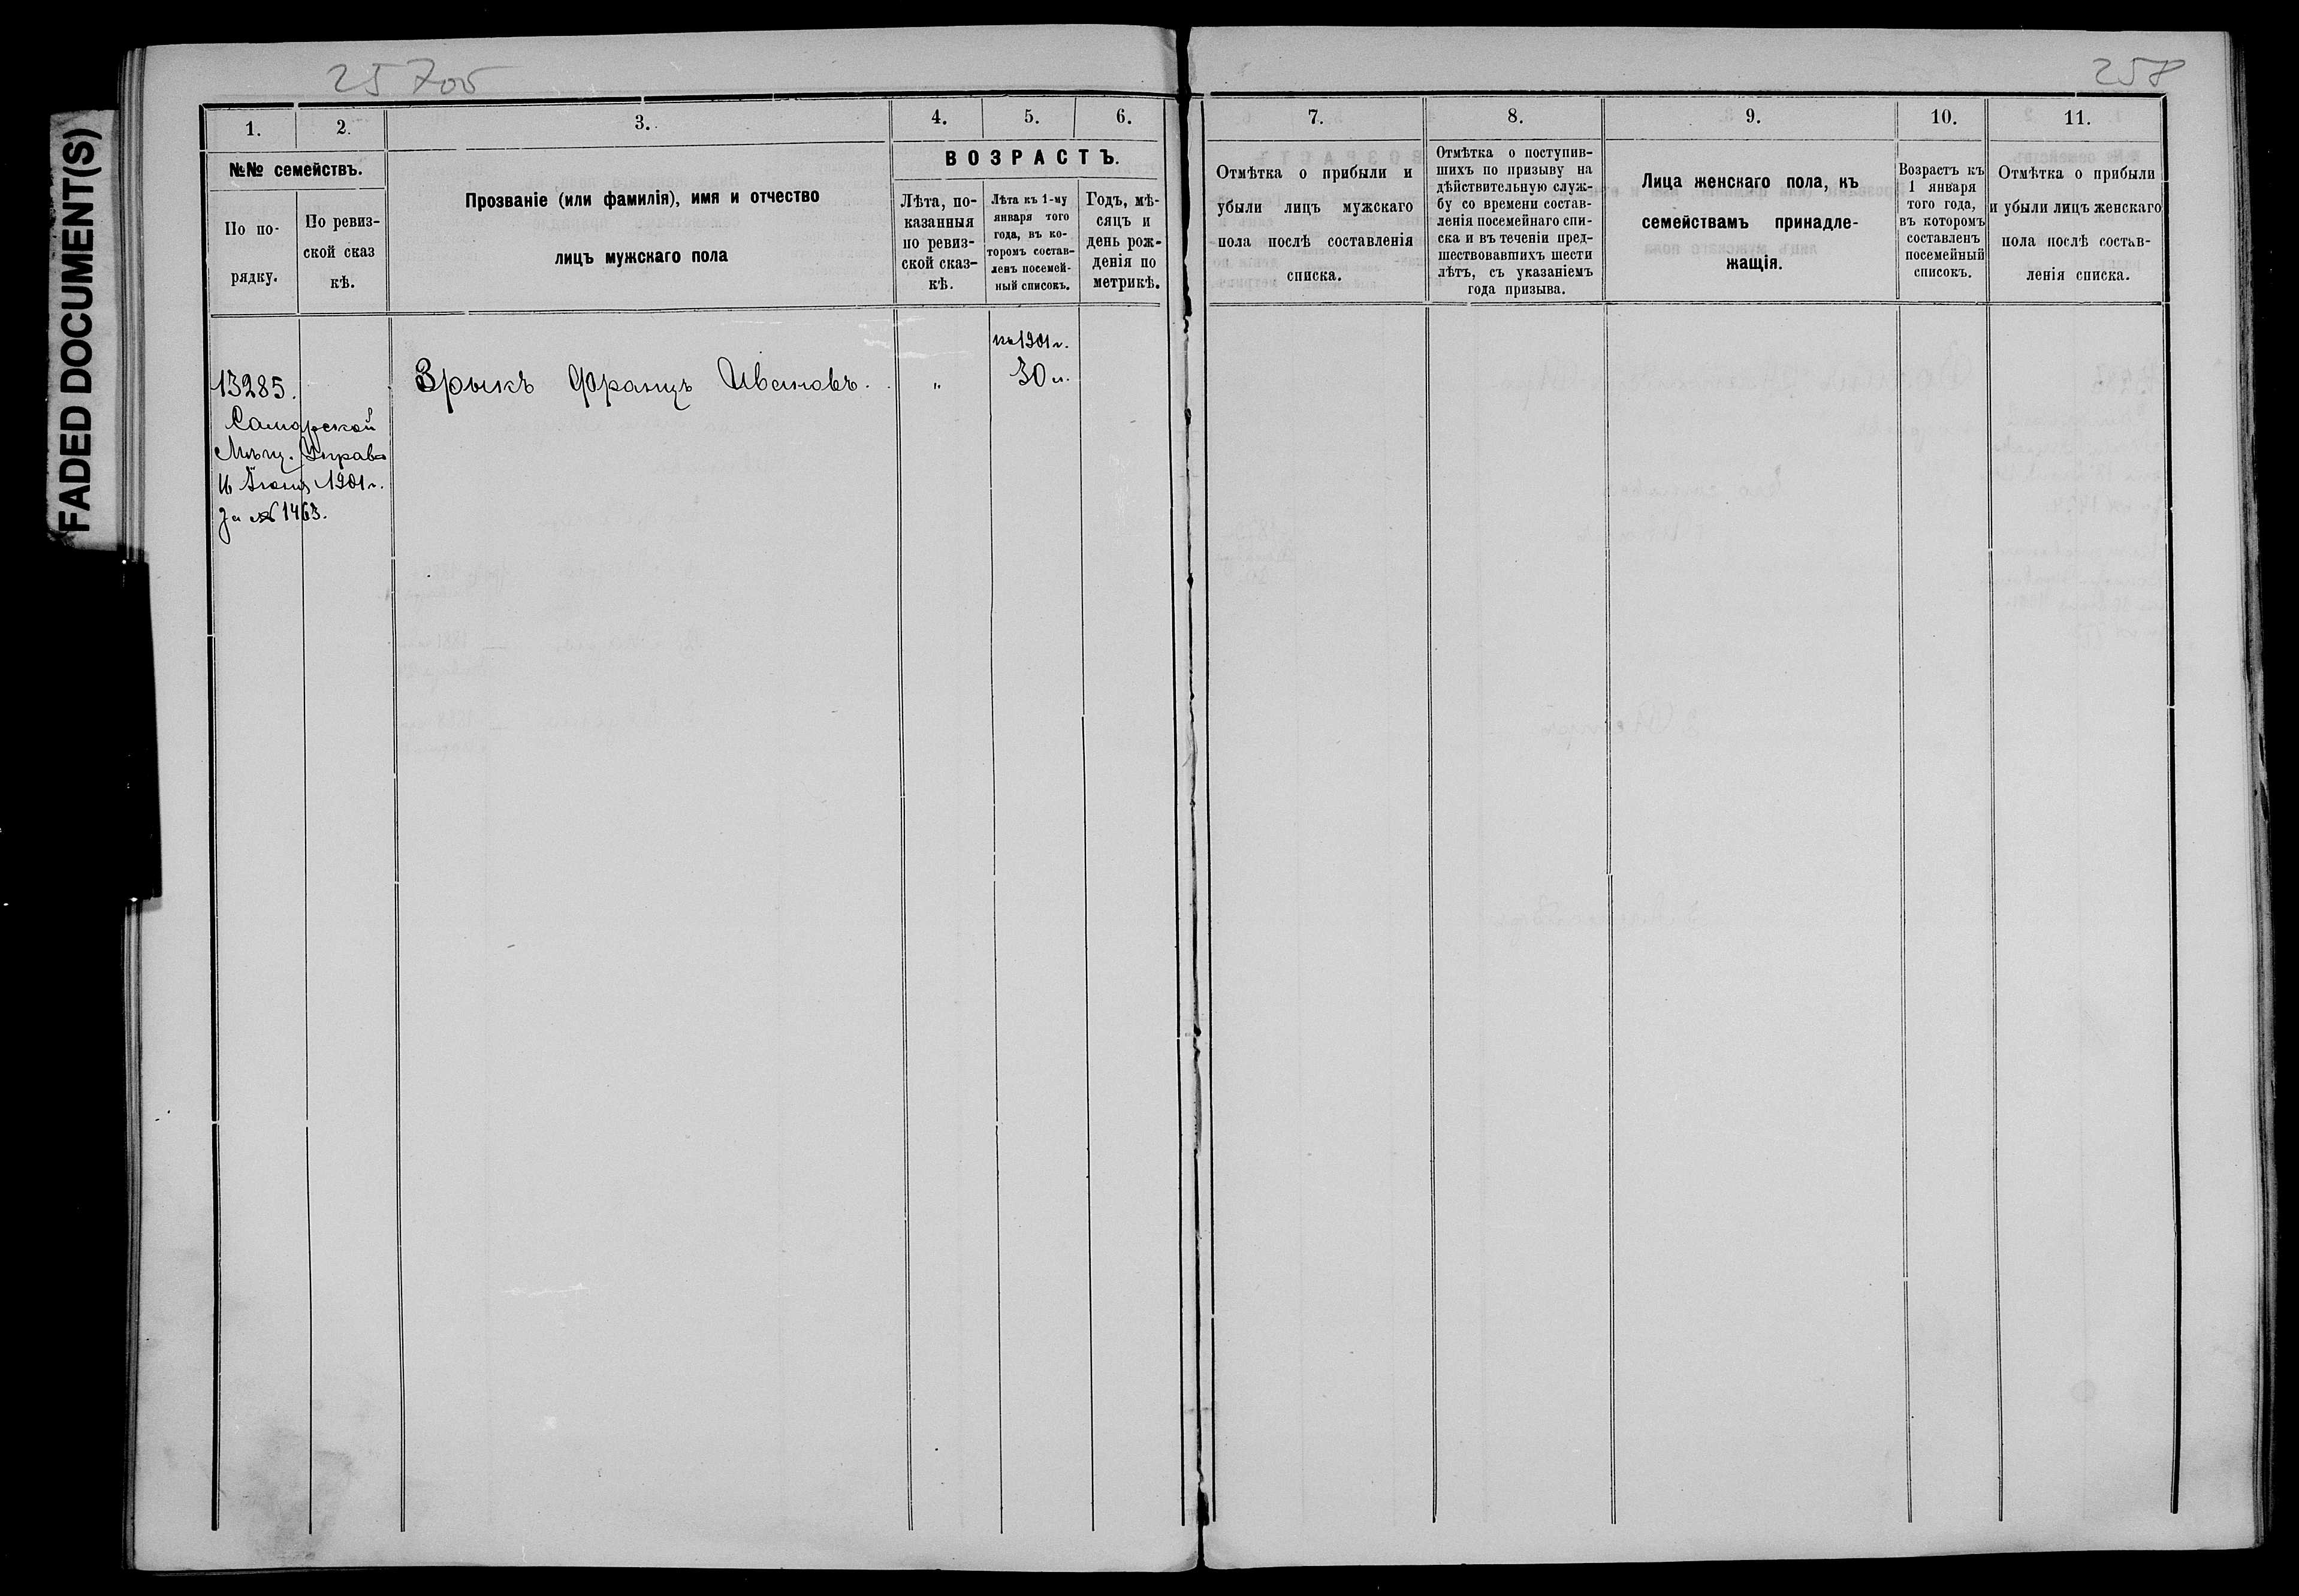 FADED DOCUMENT(S)
25 700
258
1.
2.
3.
4.
5.
6.
7.
8.
9.
10.
11.
№№ семействъ.
По по-
рядку.
По ревиз-
ской сказ
кѣ.
Прозваніе (или фамилія), имя и отчество
лицъ мужскаго пола
ВОЗРАСТЪ.
Лѣта, по-
казанныя
по ревиз-
ской сказ-
кѣ.
Лѣта къ 1-му
января того
года, въ ко-
торомъ состав-
ленъ посемей-
ный списокъ.
Годъ, мѣ-
сяцъ и
день рож-
денія по
метрикѣ.
Отмѣтка о прибыли и
убыли лицъ мужскаго
пола послѣ составленія
списка.
Отмѣтка о поступив-
шихъ по призыву на
дѣйствительную служ-
бу со времени состав-
ленія посемейнаго спи-
ска и въ теченіи пред-
шествовавшихъ шести
лѣтъ, съ указаніемъ
года призыва.
Лица женскаго пола, къ
семействамъ принадле-
жащія.
Возрастъ къ
1 января
того года,
въ которомъ
составленъ
посемейный
списокъ.
Отмѣтка о прибыли
и убыли лицъ женскаго
пола послѣ состав-
ленія списка.
на 1901 г.
13285.
Зрыкъ Францъ Ивановъ.
"
30 л.
Самарской
Мѣщ. Управ
16 1901 г.
за № 1463.